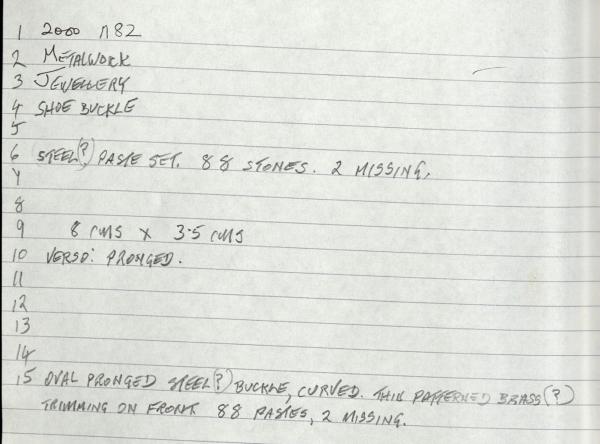 1 2000 M82
2 METALWORK
3 JEWELLERY
4 SHOE BUCKLE
5
6 STEEL(?) PASTE SET. 88 STONES. 2 MISSING.
7
8
9 8 CMS X 3.5 CMS
10 VERSO: PRONGED.
11
12
13
14
15 OVAL PRONGED STEEL(?) BUCKLE, CURVED. THIN PATTERNED BRASS(?)
TRIMMING ON FRONT 88 PASTES, 2 MISSING.